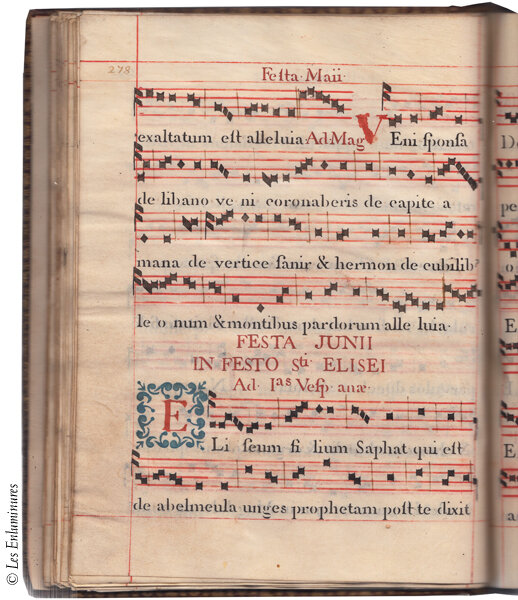 273
Festa Maii
exaltatum est alleluia Ad Mag VEni sponsa
de libano ve ni coronaberis de capite a
mana de vertice sanir & hermon de cubilib9
le o num & montibus pardorum alle luia
FESTA JUNII
IN FESTO Sti ELISEI
Ad Ias Vesp anæ
ELi seum fi lium Saphat qui est
de abelmeula unges prophetam post te dixit
© Les Enluminures